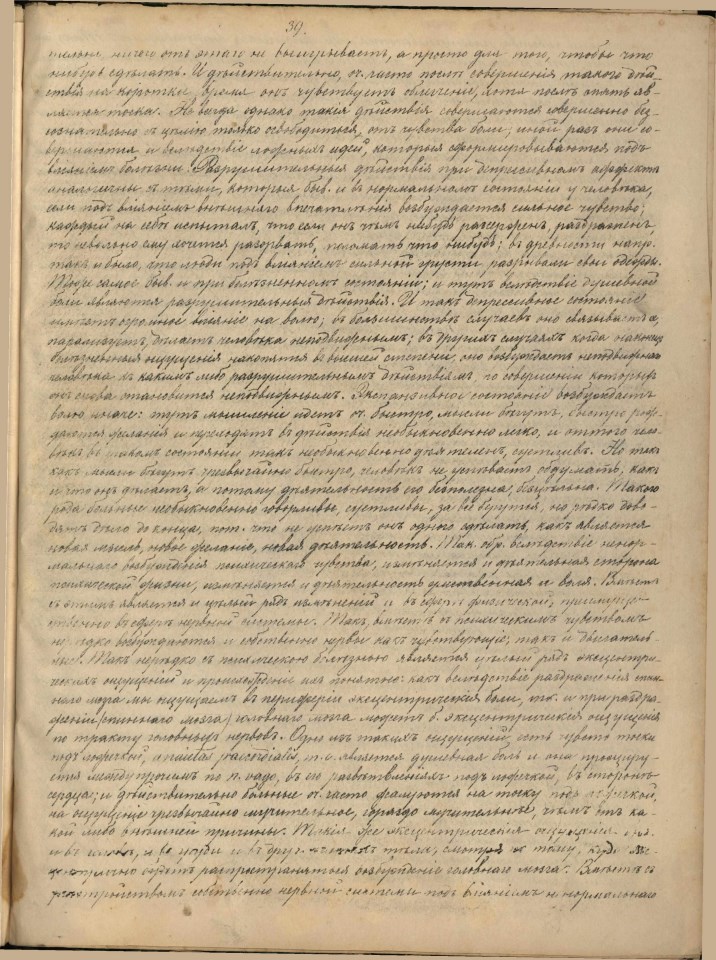 39.
ничего отъ этаго не выигрываетъ, а просто для того, чтобы что
нибудь сдѣлать. И дѣйствительно, оч. часто послѣ совершенія такого дѣй-
ствія на короткое время онъ чувствуетъ облегченіе, хотя послѣ опять яв-
ляется тоска. Не всегда однако такія дѣйствія совершаются совершенно без-
сознательно съ цѣлью только освободиться отъ чувства боли; иной разъ они со-
вершаются и вслѣдствіе ложныхъ идей, которыя сформировываются подъ
вліяніемъ болѣзни. Разрушительныя дѣйствія при депрессивномъ аффектѣ
аналогичны съ тѣми, которыя быв. и въ нормальномъ состояніи у человѣка,
если подъ вліяніемъ внѣшняго впечатлѣнія возбуждается сильное чувство;
каждый на себѣ испыталъ, что если онъ чѣмъ нибудь разсерженъ, раздраженъ,
то невольно ему хочется разорвать, поломать что нибудь; въ древности напр.
такъ и было, что люди подъ вліяніемъ сильной грусти разрывали свои одежды.
Тоже самое быв. и при болѣзненномъ состояніи; и тутъ вслѣдствіе душевной
боли являются разрушительныя дѣйствія. И такъ депрессивное состояніе
имѣетъ огромное вліяніе на волю; въ большинствѣ случаевъ оно связываетъ ея,
парализуетъ, дѣлаетъ человѣка неподвижнымъ; въ другихъ случаяхъ когда наконецъ
болѣзненныя ощущенія накопятся въ высшей степени, оно возбуждаетъ неподвижнаго
человѣка къ какимъ либо разрушительнымъ дѣйствіямъ, по совершеніи которыхъ
онъ снова становится неподвижнымъ. Экспансивное состояніе возбуждаетъ
волю иначе: тутъ мышленіе идетъ оч. быстро, мысли бѣгутъ, быстро рож-
даются желанія и переходятъ въ дѣйствія необыкновенно легко, и оттого чело-
вѣкъ въ такомъ состояніи такъ необыкновенно дѣятеленъ, суетливъ. Но такъ
какъ мысли бѣгутъ чрезвычайно быстро, человѣкъ не успѣваетъ обдумать, какъ
и что онъ дѣлаетъ, а потому дѣятельность его безполезна, безцѣльна. Такого
рода больные необыкновенно говорливы, суетливы, за все берутся, но рѣдко дово-
дятъ дѣло до конца, пот. что не успѣетъ онъ одного сдѣлать, какъ является
новая мысль, новое желаніе, новая дѣятельность. Так. обр. вслѣдствіе ненор-
мальнаго возбужденія психическаго чувства, измѣняется и дѣятельная сторона
психической жизни, измѣняется и дѣятельность умственная и воля. Вмѣстѣ
съ этимъ является и цѣлый рядъ измѣненій и въ сферѣ физической, преимуще-
ственно въ сферѣ нервной системы. Такъ, вмѣстѣ съ психическимъ чувствомъ
не рѣдко возбуждаются и собственно нервы какъ чувствующіе, такъ и двигатель-
ные. Такъ нерѣдко съ психическою болѣзнью является цѣлый рядъ эксцентри-
ческихъ ощущеній и происхожденіе ихъ понятно: какъ вслѣдствіе раздраженія спин-
наго мозга мы ощущаемъ въ периферіи эксцентрическія боли, так. и при раздра-
женіи (спиннаго мозга) головнаго мозга можетъ б. эксцентрическія ощущенія
по тракту головныхъ нервовъ. Одно изъ такихъ ощущеній есть чувство тоски
подъ ложечкой, anxietas praecordialis, т. е. является душевная боль и она проэциру-
ется между прочимъ по n. vago, въ его развѣтвленіяхъ подъ ложечкой, въ сторонѣ
сердца; и дѣйствительно больные оч. часто жалуются на тоску подъ ложечкой,
на ощущеніе чрезвычайно мучительное, гораздо мучительнѣе, чѣмъ отъ ка-
кой либо внѣшней причины. Такія же эксцентрическія ощущенія
и въ и въ друг. частяхъ тѣла, смотря по тому, куда
будетъ распространяться возбужденіе головнаго мозга. Вмѣстѣ съ
разстройствомъ собственно нервной системы подъ вліяніемъ ненормальнаго